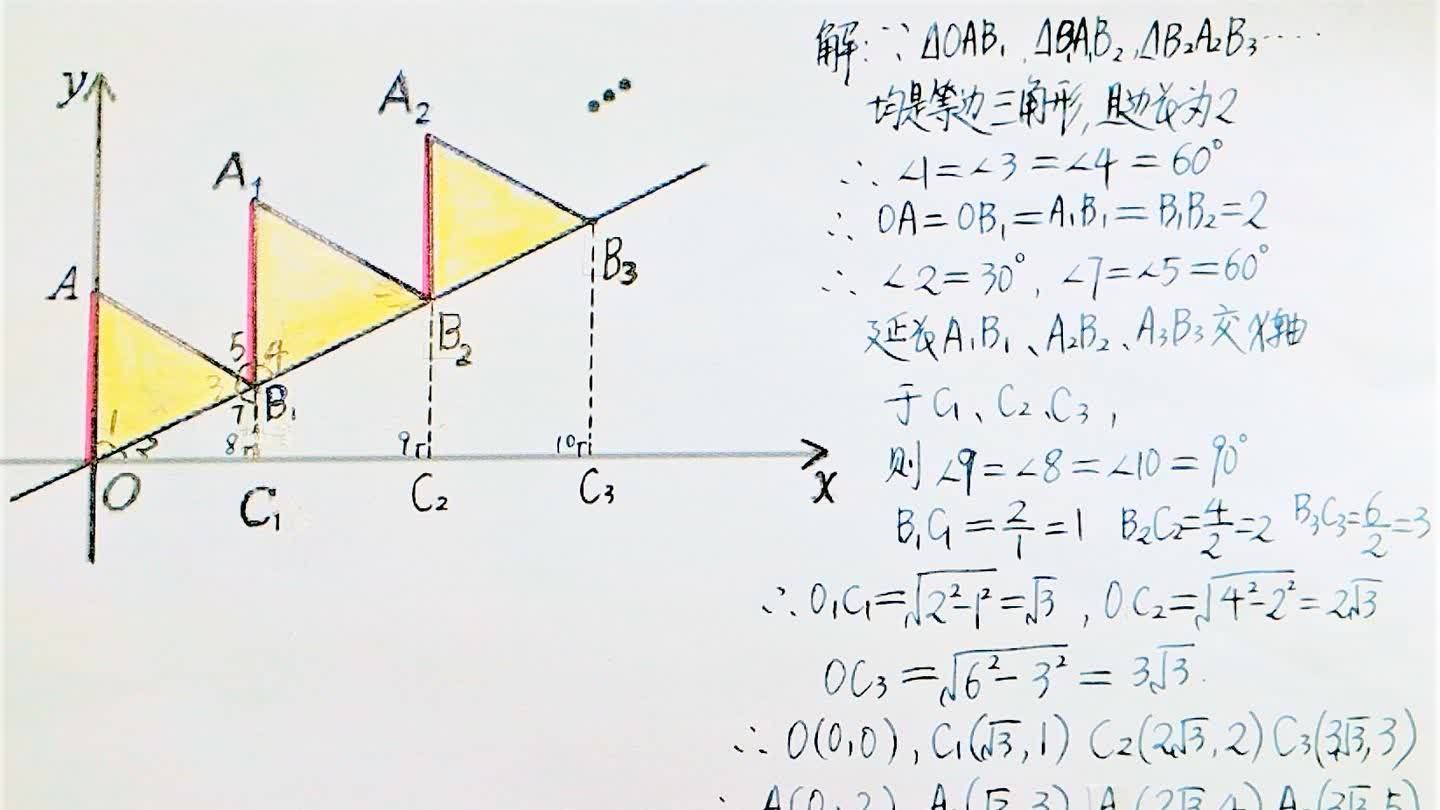 y
A₂
A₁
A
B₃
B₂
5 4
3
7 B₁
1
2
8
9
10
O
C₁
C₂
C₃
x
解:∵ΔOAB₁,ΔB₁A₁B₂,ΔB₂A₂B₃……
均是等边三角形,且边长为2
∴∠1=∠3=∠4=60°
∴OA=OB₁=A₁B₁=B₁B₂=2
∴∠2=30°,∠7=∠5=60°
延长A₁B₁、A₂B₂、A₃B₃交X轴
于C₁、C₂、C₃,
则∠9=∠8=∠10=90°
B₁C₁=2/1=1 B₂C₂=4/2=2 B₃C₃=6/2=3
∴O₁C₁=√(2²-1²)=√3,OC₂=√(4²-2²)=2√3
OC₃=√(6²-3²)=3√3.
∴O(0,0),C₁(√3,1) C₂(2√3,2) C₃(3√3,3)